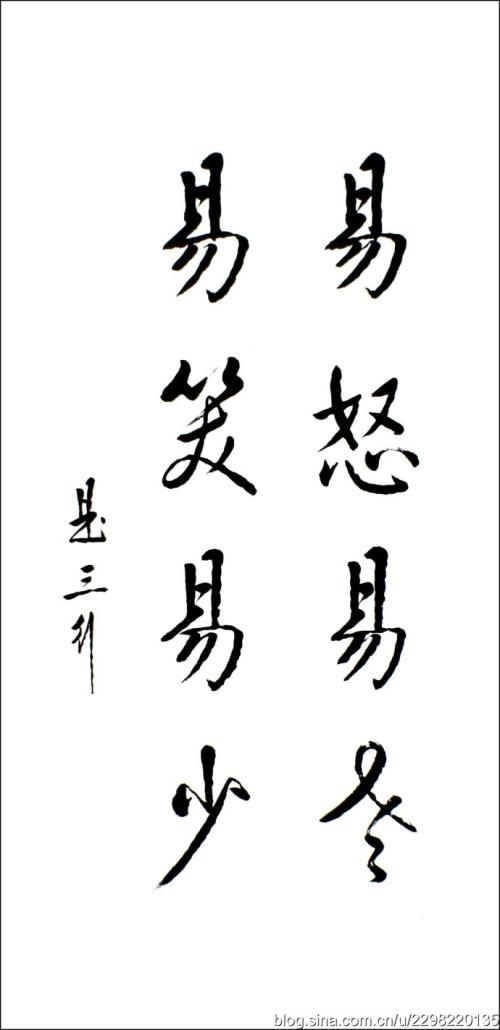 易怒易老
易笑易少
是三
blog.sina.com.cn/u/2298220135